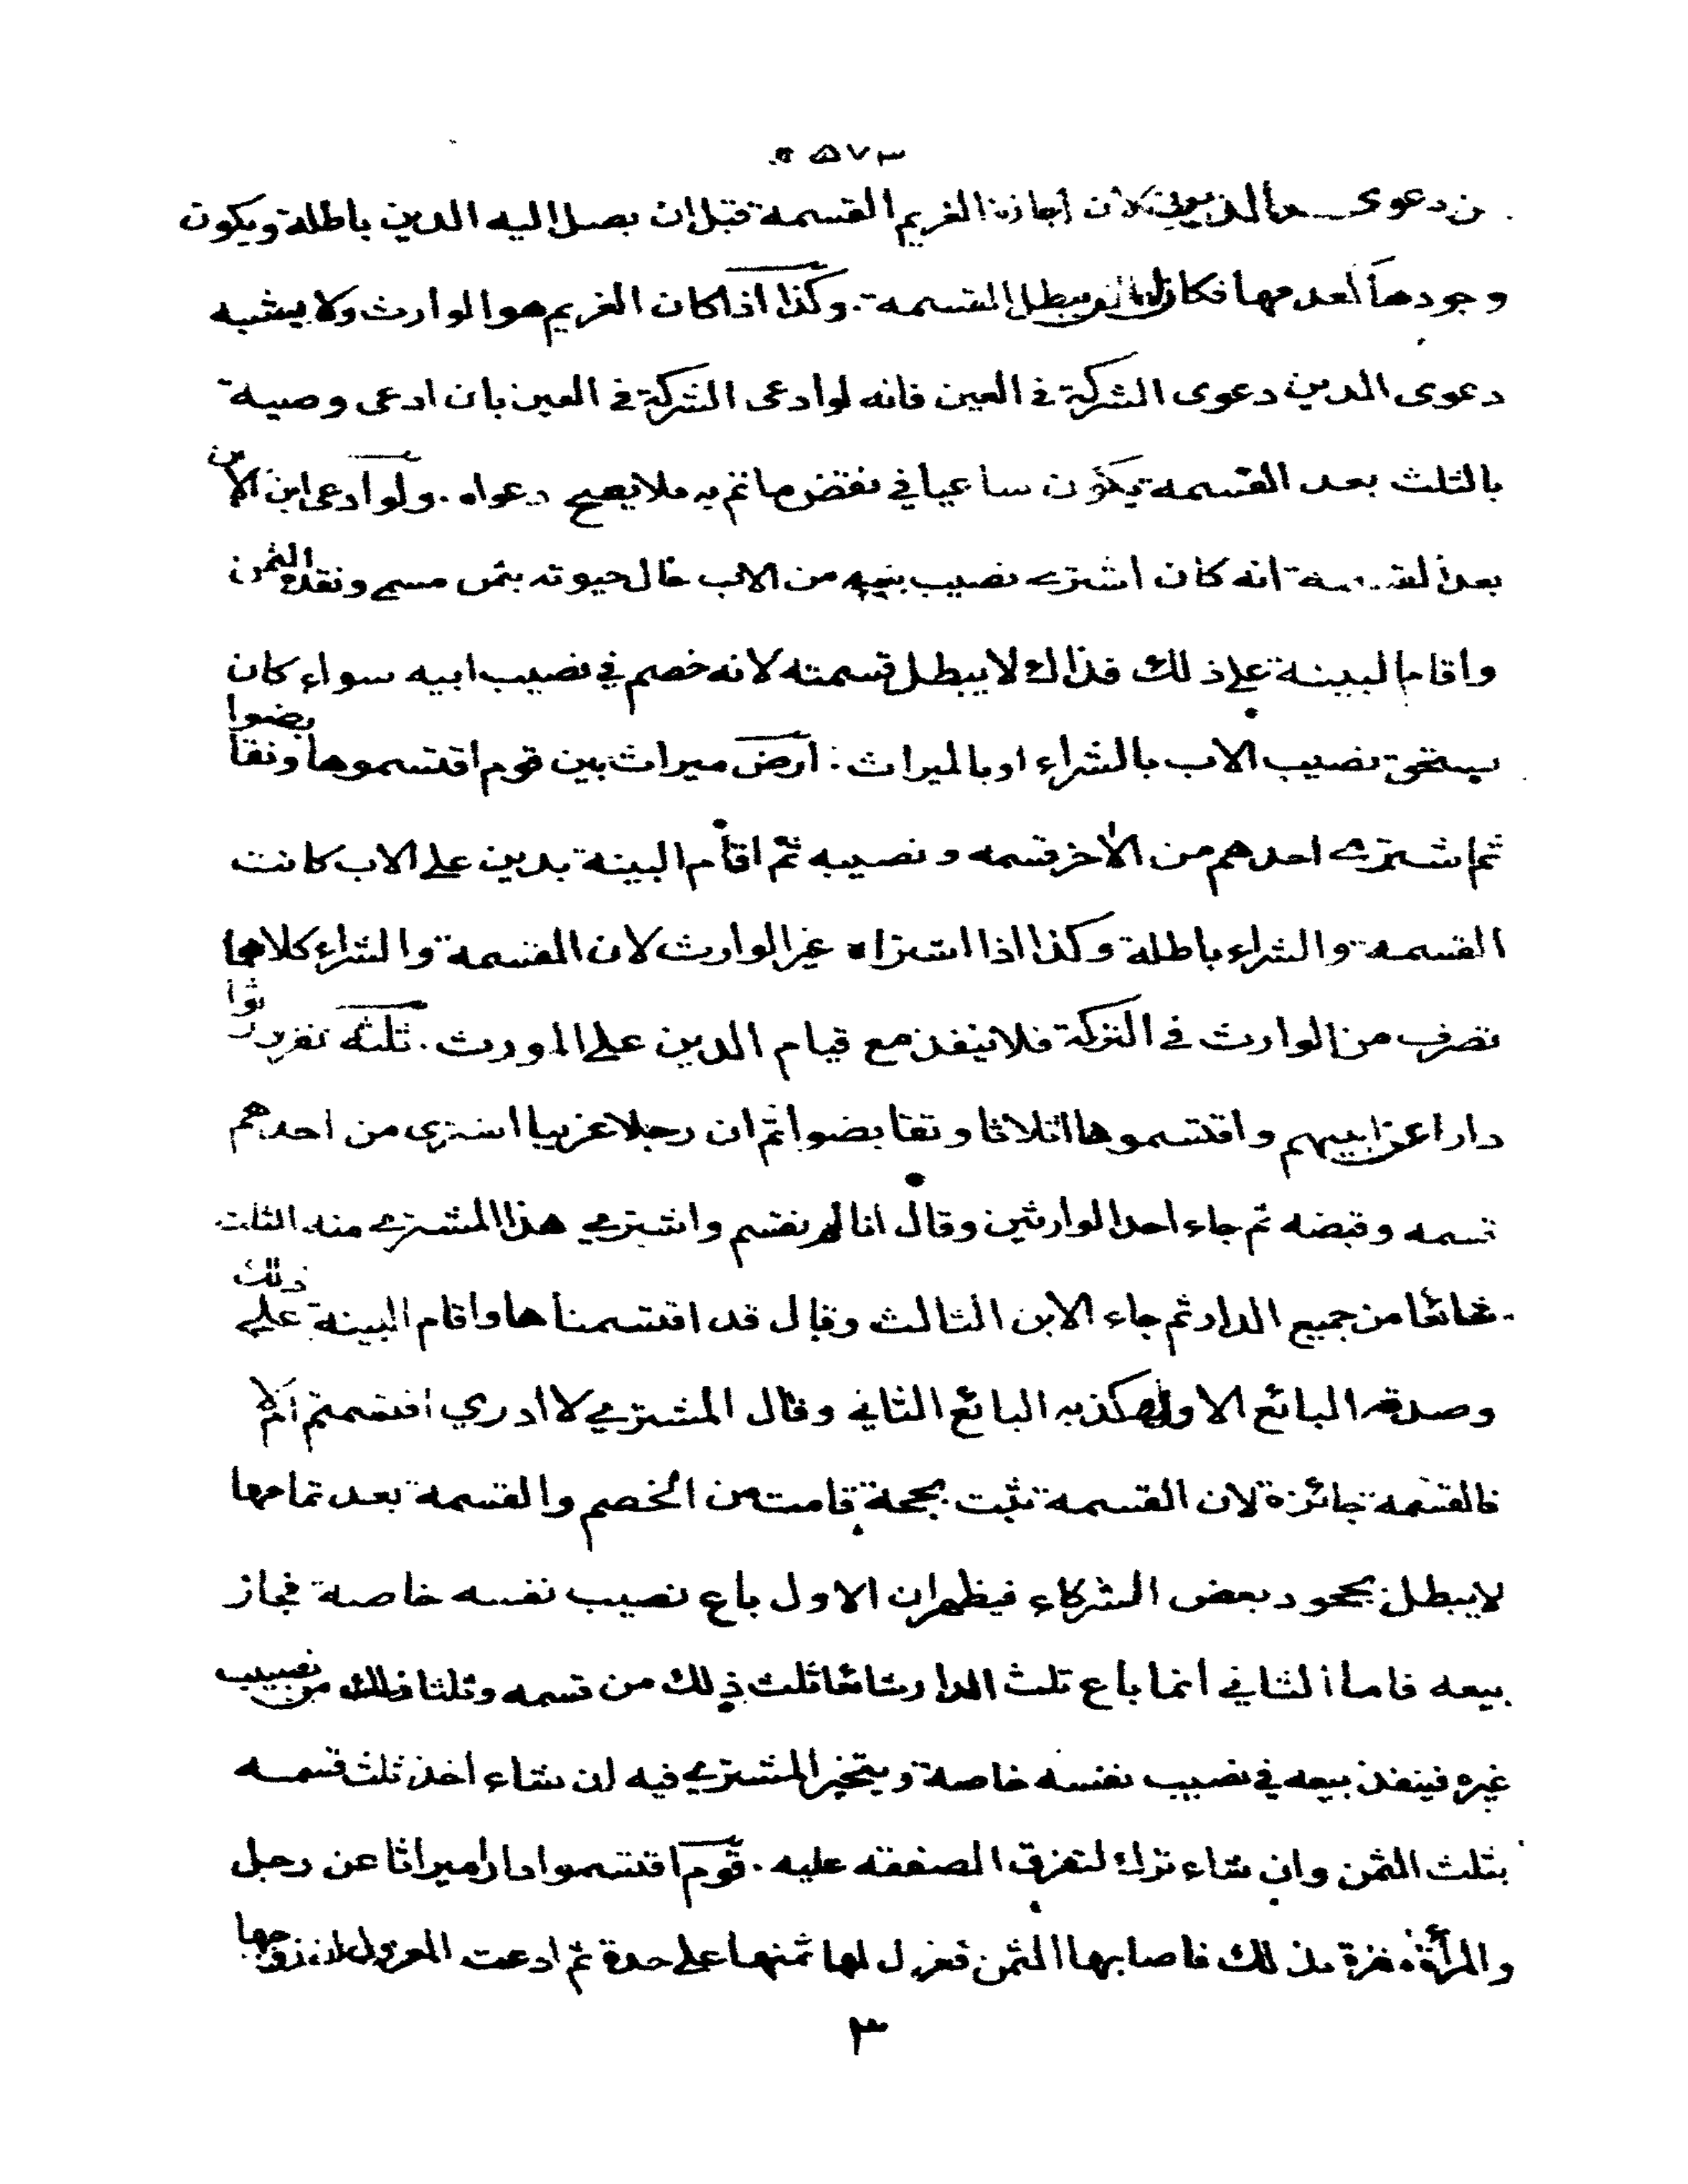 ٥٧٣
من دعوى الدين لان اجازة الغريم القسمة قبل ان يصل اليه الدين باطلة ويكون
وجودها لعدمها فكان له ان يبطل القسمة. وكذا اذا كان الغريم هو الوارث ولا يشبه
دعوى الدين دعوى الشركة في العين فانه لو ادعى الشركة في العين بان ادعى وصية
بالثلث بعد القسمة يكون ساعيا في نقض ما تم به فلا يصح دعواه. ولو ادعى ابن الابن
بعد القسمة انه كان اشترى نصيب ابيه من الاب حال حيوته بثمن مسمى ونقده الثمن
واقام البينة على ذلك فذاك لا يبطل قسمته لانه خصم في نصيب ابيه سواء كان
يستحق نصيب الاب بالشراء او بالميراث: ارض ميراث بين قوم اقتسموها وتقابضوا
ثم اشترى احدهم من الاخر قسمه و نصيبه ثم اقام البينة بدين على الاب كانت
القسمة والشراء باطلة وكذا اذا اشتراه غير الوارث لان القسمة والشراء كلاهما
تصرف من الوارث في التركة فلا ينفذ مع قيام الدين على المورث. ثلثة نفر ورثوا
دارا عن ابيهم واقتسموها اثلاثا وتقابضوا ثم ان رجلا غريبا اشترى من احدهم
قسمه وقبضه ثم جاء احد الوارثين وقال انا لم نقسم واشترى هذا المشترى منه الثلث
شائعا من جميع الدار ثم جاء الابن الثالث وقال قد اقتسمناها واقام البينة على ذلك
وصدقه البائع الاول وكذبه البائع الثاني وقال المشترى لا ادري اقتسمتم ام لا
فالقسمة جائزة لان القسمة تثبت بحجة قامت من الخصم والقسمة بعد تمامها
لا يبطل بجحود بعض الشركاء فيظهر ان الاول باع نصيب نفسه خاصة فجاز
بيعه فاما الثاني انما باع ثلث الدار شائعا ثلث ذلك من قسمه وثلثا ذلك من نصيب
غيره فينفذ بيعه في نصيب نفسه خاصة ويتخير المشترى فيه ان شاء اخذ ثلث قسمه
بثلث الثمن وان شاء ترك لتفرق الصفقة عليه. قوم اقتسموا دارا ميراثا عن رجل
والمرأة مقرة بذلك فاصابها الثمن فعزل لها ثمنها على حدة ثم ادعت المعزول ان زوجها
٣